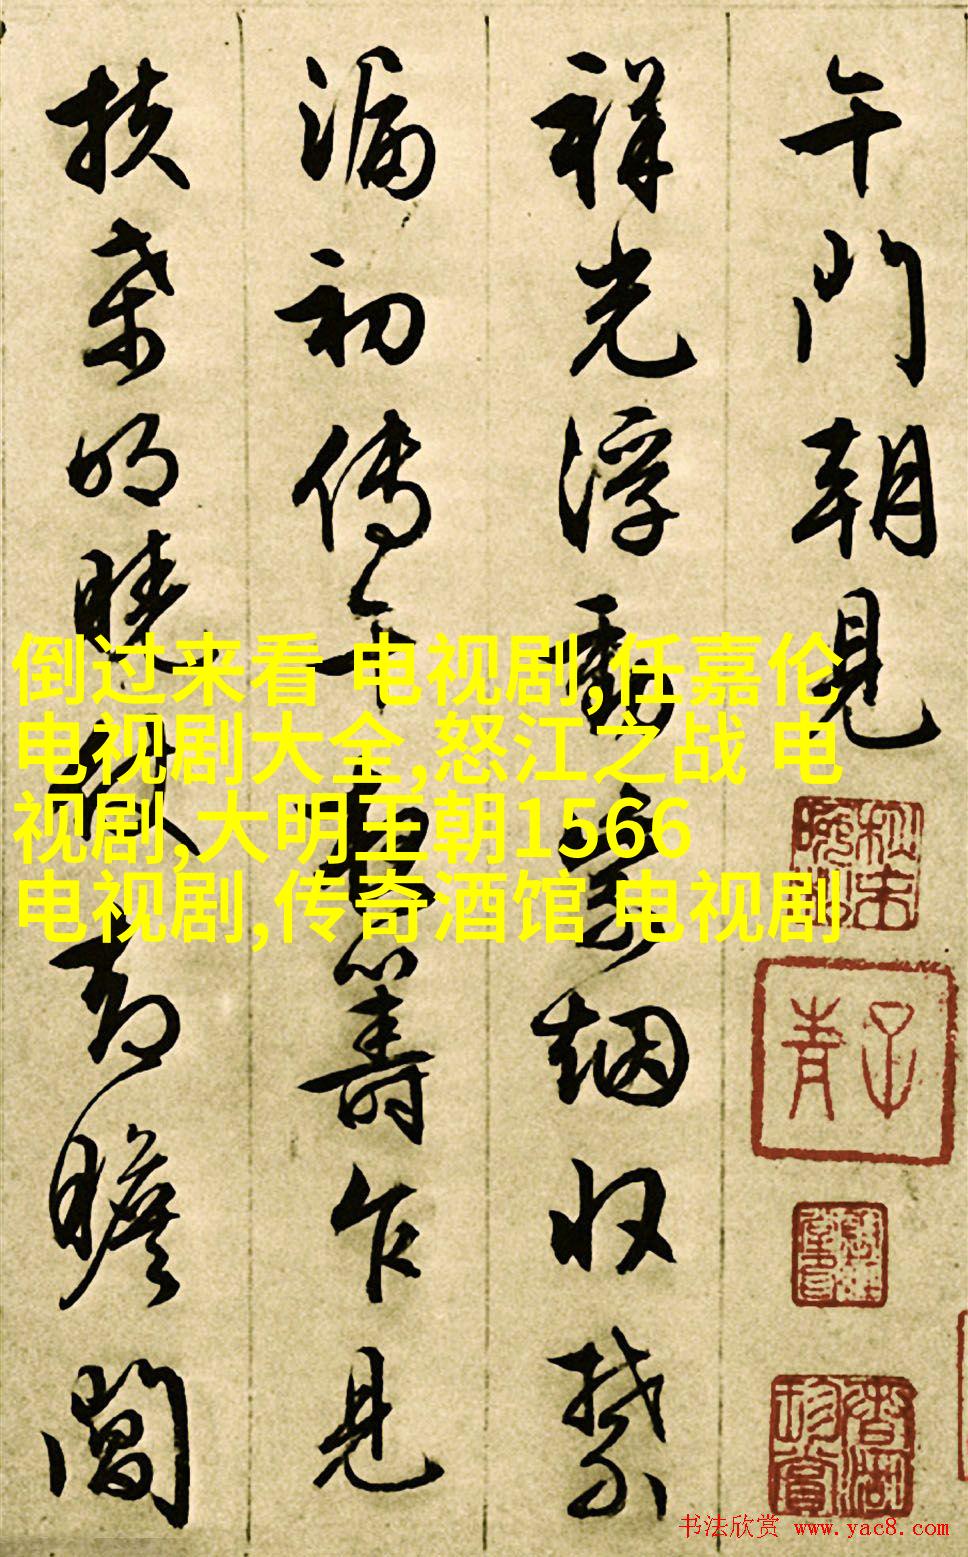 午門朝見
祥光浮動紫烟收禁
漏初传籌乍見
扶桑明曉却瞻閶
倒过来看 电视剧,任嘉伦
电视剧大全,怒江之战 电
视剧,大明王朝1566
电视剧,传奇酒馆 电视剧
子青
书法欣赏 www.yac8.com